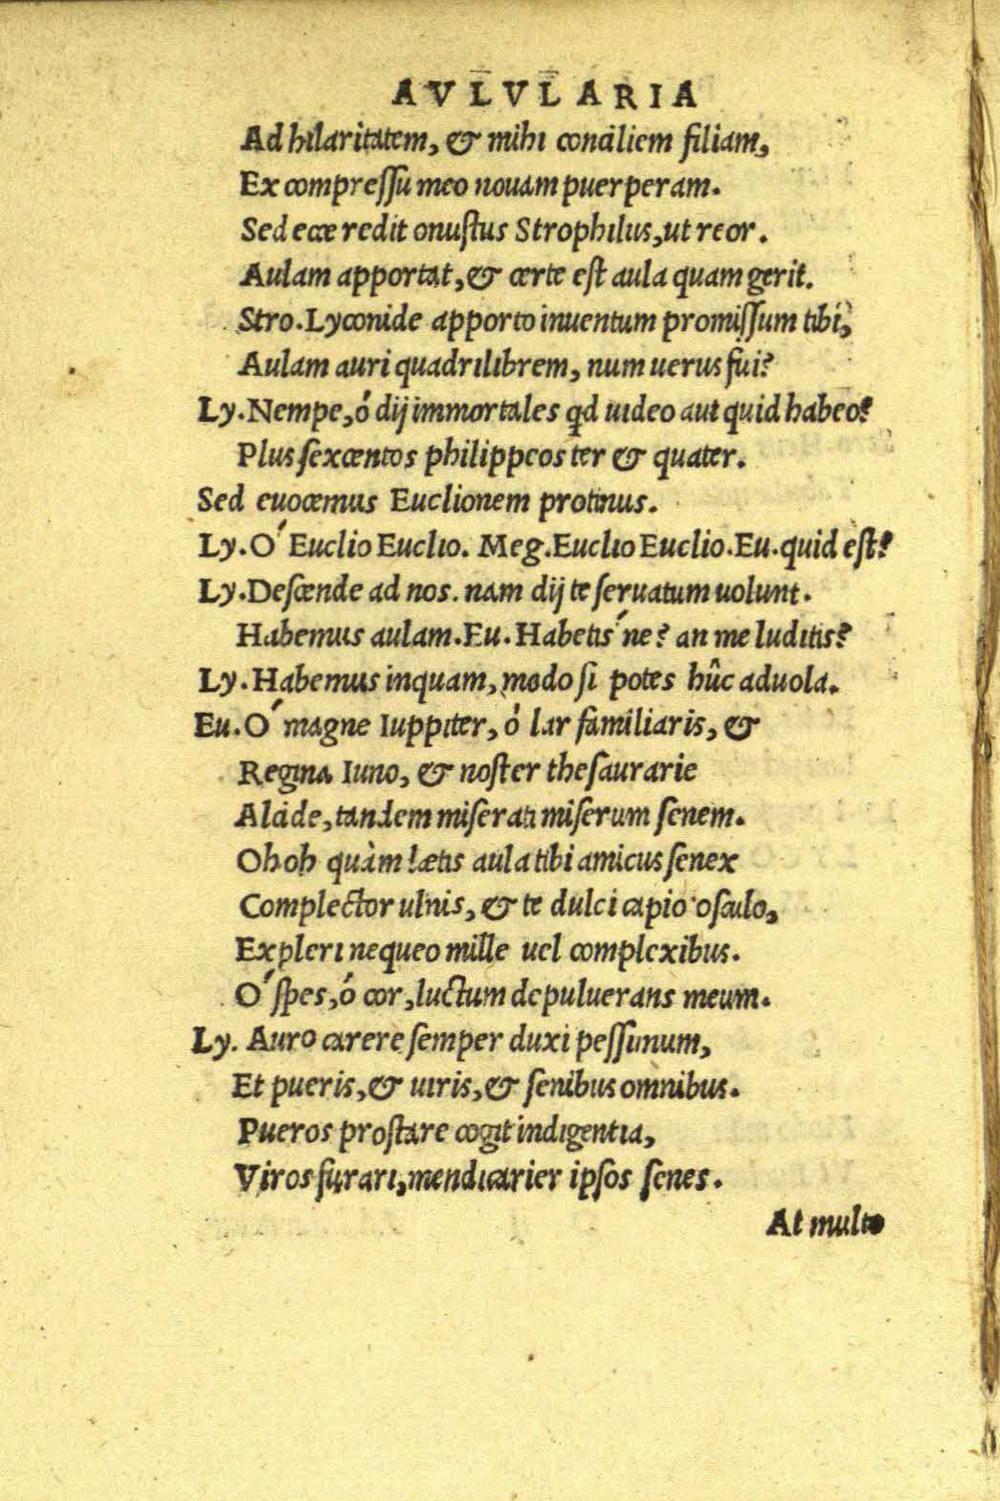 AVLVLARIA
Ad hilaritatem, & mihi conciliem filiam,
Ex compreſſu meo nouam puerperam.
Sed ecce redit onuſtus Strophilus, ut reor.
Aulam apportat, & certe eſt aula quam gerit.
Stro. Lyconide apporto inuentum promiſſum tibi,
Aulam auri quadrilibrem, num uerus fui?
Ly. Nempe, ó dij immortales qd uideo aut quid habeo?
Plus ſexcentos philippeos ter & quater.
Sed euocemus Euclionem protinus.
Ly. O´ Euclio Euclio. Meg. Euclio Euclio. Eu. quid eſt?
Ly. Deſcende ad nos. nam dij te ſeruatum uolunt.
Habemus aulam. Eu. Habetis´ne? an me luditis?
Ly. Habemus inquam, modo ſi potes hûc aduola.
Eu. O´ magne Iuppiter, ó lar familiaris, &
Regina Iuno, & noſter theſaurarie
Alcide, tandem miſerati miſerum ſenem.
Oh oh quàm lætis aula tibi amicus ſenex
Complector ulnis, & te dulci capio oſculo,
Expleri nequeo mille uel complexibus.
O´ ſpes, ó cor, luctum depuluerans meum.
Ly. Auro carere ſemper duxi peſſimum,
Et pueris, & uiris, & ſenibus omnibus.
Pueros proſtare cogit indigentia,
Viros furari, mendicarier ipſos ſenes.
At multo